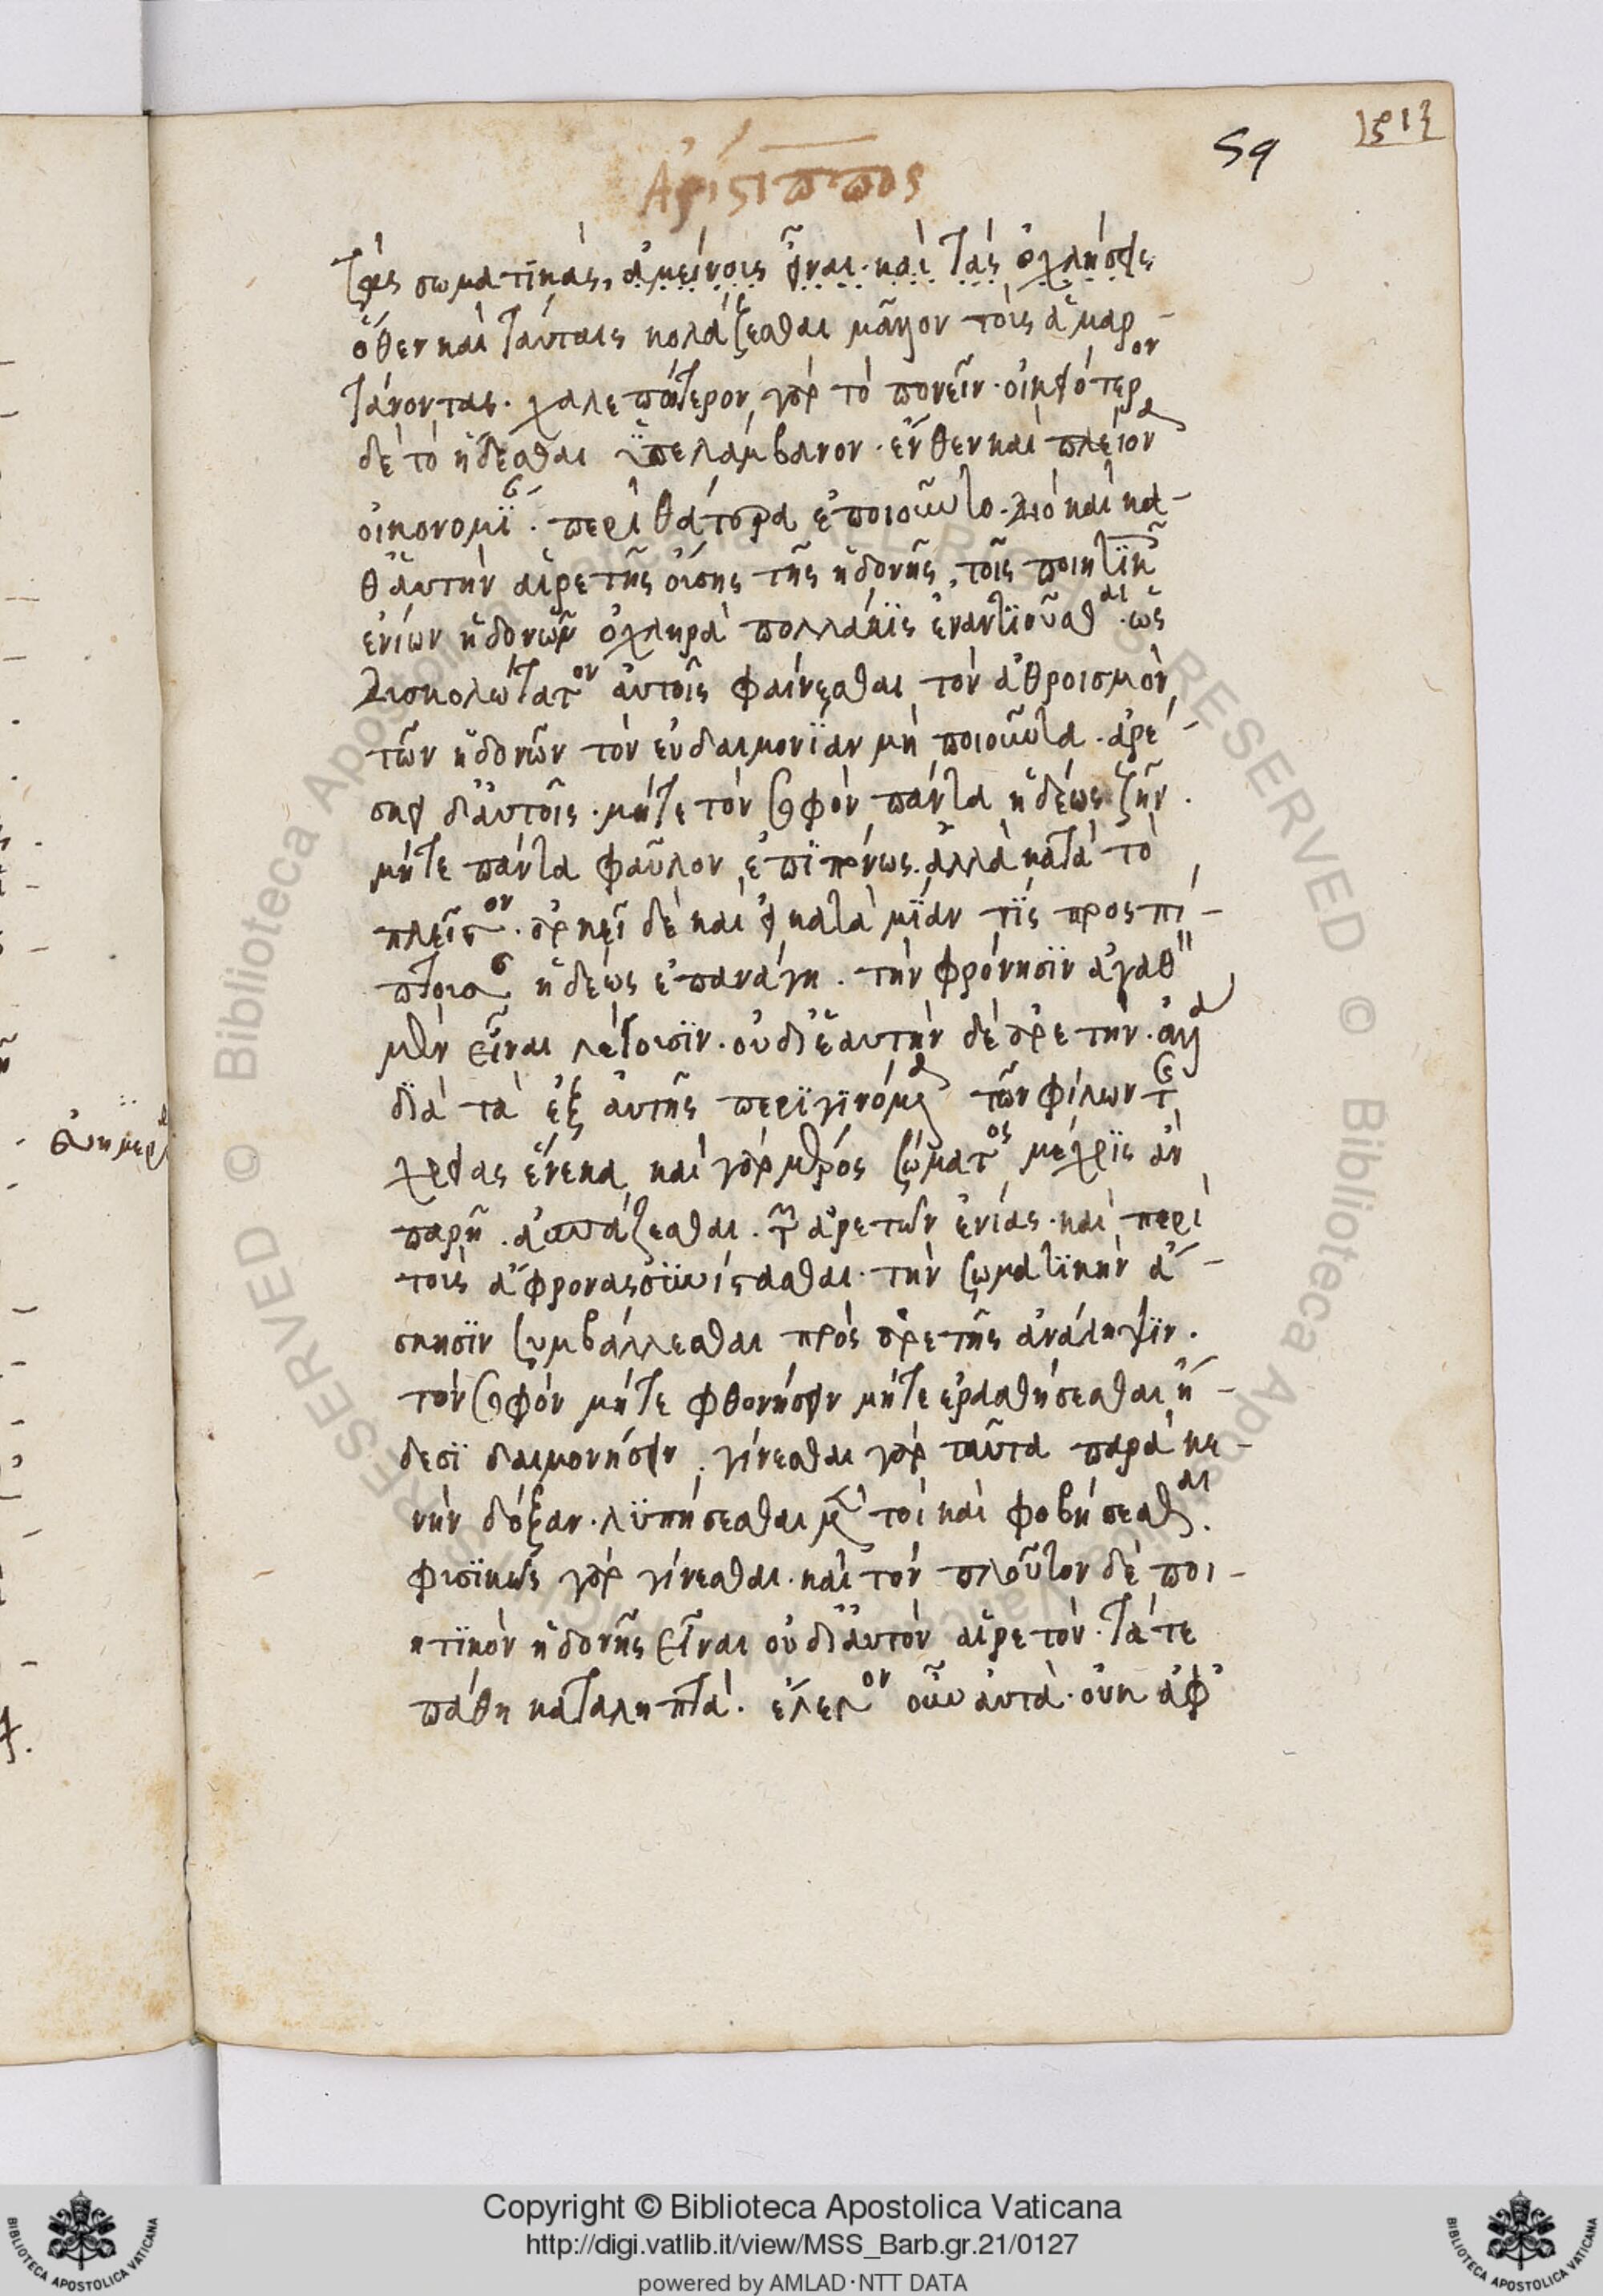 59
Ἀρίστιππος
τὰς σωματικάς. ἀμείνοις εἶναι. καὶ τὰς ὀχλήσεις
ὅθεν καὶ ταύταις κολάζεσθαι μᾶλλον τοῖς ἁμαρ-
τάνοντας. χαλεπώτερον γὰρ τὸ πονεῖν. οἰκειότερον
δὲ τὸ ἥδεσθαι ὑπελάμβανον. ἔνθεν καὶ πλείονα
οἰκονομί. περὶ θάτερα ἐποιοῦντο. διὸ καὶ κα-
θ' αὑτὴν αἱρετῆς οὔσης τῆς ἡδονῆς, τοῖς ποιητικ
ἐνίων ἡδονῶν ὀχληρὰ πολλάκις ἐναντιοῦσθαι. ὡς
δισκολώτατον αὐτοῖς φαίνεσθαι τὸν ἀθροισμὸν
τῶν ἡδονῶν τὸν εὐδαιμονίαν μὴ ποιοῦντα. ἀρέ-
σκει δ' αὐτοῖς. μήτε τὸν σοφὸν πάντα ἡδέως ζῆν.
μήτε πάντα φαῦλον ἐπιπόνως. ἀλλὰ κατὰ τὸ
πλεῖστον. ἀρκεῖ δὲ καὶ εἰ κατὰ μίαν τὶς προσπί-
πτουσ ἡδέως ἐπανάγη. τὴν φρόνησιν ἀγαθὴ
μὲν εἶναι λέγουσιν. οὐ δι' ἑαυτὴν δὲ ἀρετὴν. ἀλλὰ
διὰ τὰ ἐξ αὐτῆς περιγινόμενα τῶν φίλων τ
χρείας ἕνεκα καὶ γὰρ μέρος σώματος μέχρις ἂν
παρῇ. ἀσπάζεσθαι. τῶν ἀρετῶν ἐνίας. καὶ περὶ
τοὶς ἄφρονας συνίστασθαι. τὴν σωματικὴν ἄ-
σκησιν συμβάλλεσθαι πρὸς ἀρετῆς ἀνάληψιν.
τὸν σοφὸν μήτε φθονήσειν μήτε ἐρασθήσεσθαι ἢ-
δεσι δαιμονήσειν. γίνεσθαι γὰρ ταῦτα παρὰ κε-
νὴν δόξαν. λυπήσεσθαι μέν τοι καὶ φοβήσεσθαι.
φισικῶς γὰρ γίνεσθαι. καὶ τὸν πλοῦτον δὲ ποι-
ητικὸν ἡδονῆς εἶναι οὐ δι' αὑτὸν αἱρετὸν. τά τε
πάθη καταληπτά. ἔλεγον οὖν αὐτὰ. οὐκ ἀφ'
Copyright © Biblioteca Apostolica Vaticana
http://digi.vatlib.it/view/MSS_Barb.gr.21/0127
powered by AMLAD·NTT DATA